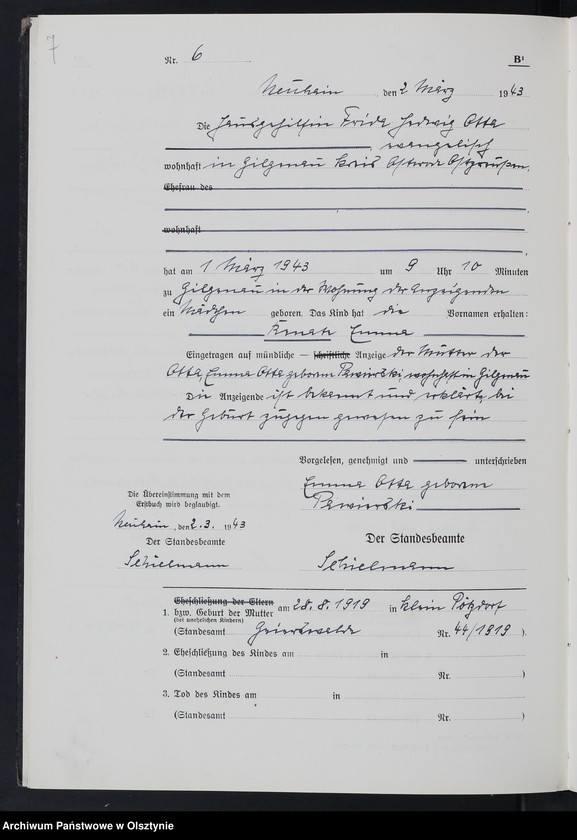 7
Nr. 6 B¹
Neuhain, den 2 März 1943
Die Hausgehilfin Frida Hedwig Otta
, evangelisch
wohnhaft in Gilgenau Kreis Osterode Ostpreußen.
Ehefrau des
wohnhaft
hat am 1 März 1943 um 9 Uhr 10 Minuten
zu Gilgenau in der Wohnung der Anzeigenden
ein Mädchen geboren. Das Kind hat die Vornamen erhalten:
Renate Emma
Eingetragen auf mündliche — schriftliche Anzeige der Mutter der
Otta, Emma Otta geborene Pawierski, wohnhaft in Gilgenau
Die Anzeigende ist bekannt und erklärte, bei
der Geburt zugegen gewesen zu sein
Vorgelesen, genehmigt und unterschrieben
Emma Otta geborene
Pawierski
Die Übereinstimmung mit dem
Erstbuch wird beglaubigt.
Neuhain, den 2.3. 1943
Der Standesbeamte
Schielmann
Der Standesbeamte
Schielmann
Eheschließung der Eltern
1. bzw. Geburt der Mutter am 28.8.1919 in Klein Pötzdorf
(bei unehelichen Kindern)
(Standesamt Geierswalde Nr. 44/1919 )
2. Eheschließung des Kindes am in
(Standesamt Nr. )
3. Tod des Kindes am in
(Standesamt Nr. )
Archiwum Państwowe w Olsztynie